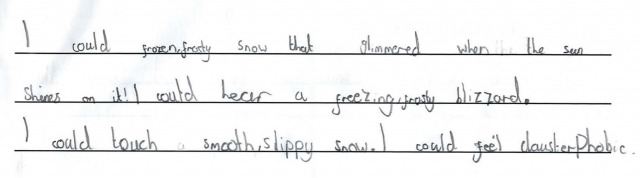 I could frozen,frosty snow that glimmered when the sun
shines on it! I could hear a freezing,frosty blizzard.
I could touch a smooth,slippy snow. I could feel clausterphobic.